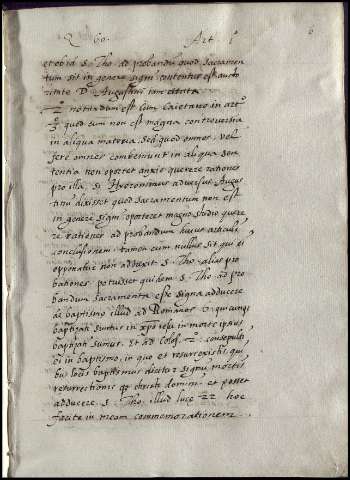 Q. 60. Art. 1 6
et ob id S. Tho. ad probandū quod sacramen
tum sit in genere signi contentus est aucto
ritate D. Augustini
notandum est cum Caietano in artº
quod cum non est magna controversia
in aliqua materia, sed quod omnes, vel
fere omnes conveniunt in aliqua sen
tentia non oportet anxie querere rationes
pro illa, si Hyeronimus adversus Augus
tinū dixisset quod sacramentum non est
in genere signi, oporteret magno studio quere
re rationes ad probandum huius articuli
conclusionem, tamen cum nullus sit qui ei
opponatur non adduxit S. Tho. alias pro
bationes potuisset quidem S. Tho. ad pro
bandum sacramenta esse signa adducere
de baptismo illud ad Romanos 6. quicunq
baptizati sumus in xpo iesu in morte ipsius
baptizati sumus. et ad Colos. 2. consepulti
ei in baptismo, in quo et resurrexistis, qui
bus locis baptismus dicitur signū mortis
resurrectionis christi domini, et posset
adducere S. Tho. illud luce 22 hoc
facite in meam commemorationem